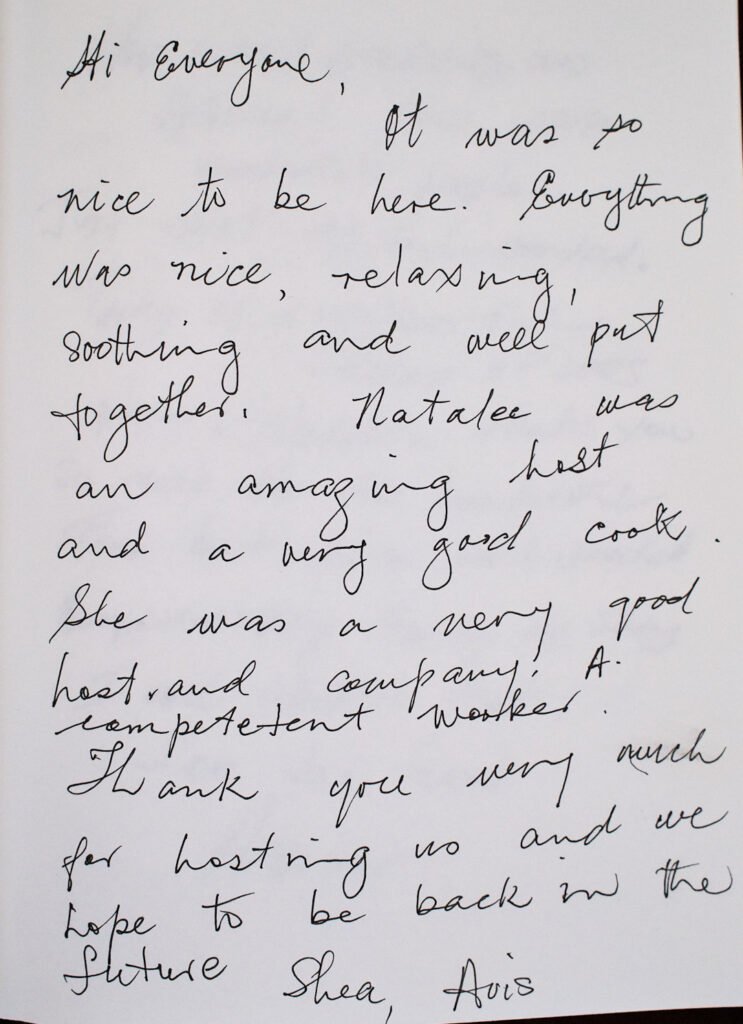 Hi Everyone,
It was so
nice to be here. Everything
was nice, relaxing,
soothing and well put
together. Natalee was
an amazing host
and a very good cook.
She was a very good
host. and company. A.
competetent worker.
Thank you very much
for hosting us and we
hope to be back in the
future Shea, Avis